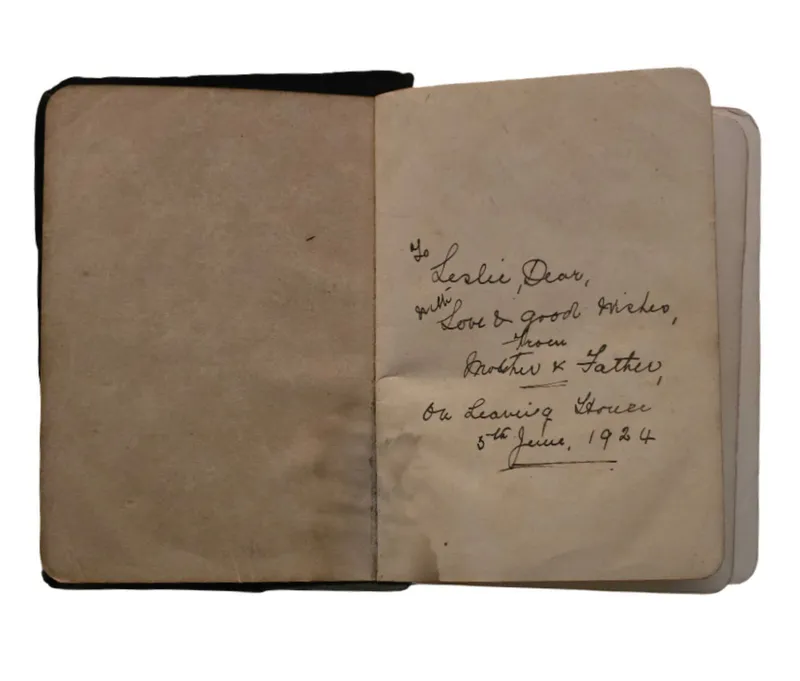 To
Leslie, Dear,
with Love & good Wishes,
from
Mother & Father,
On Leaving Home
5th June, 1924